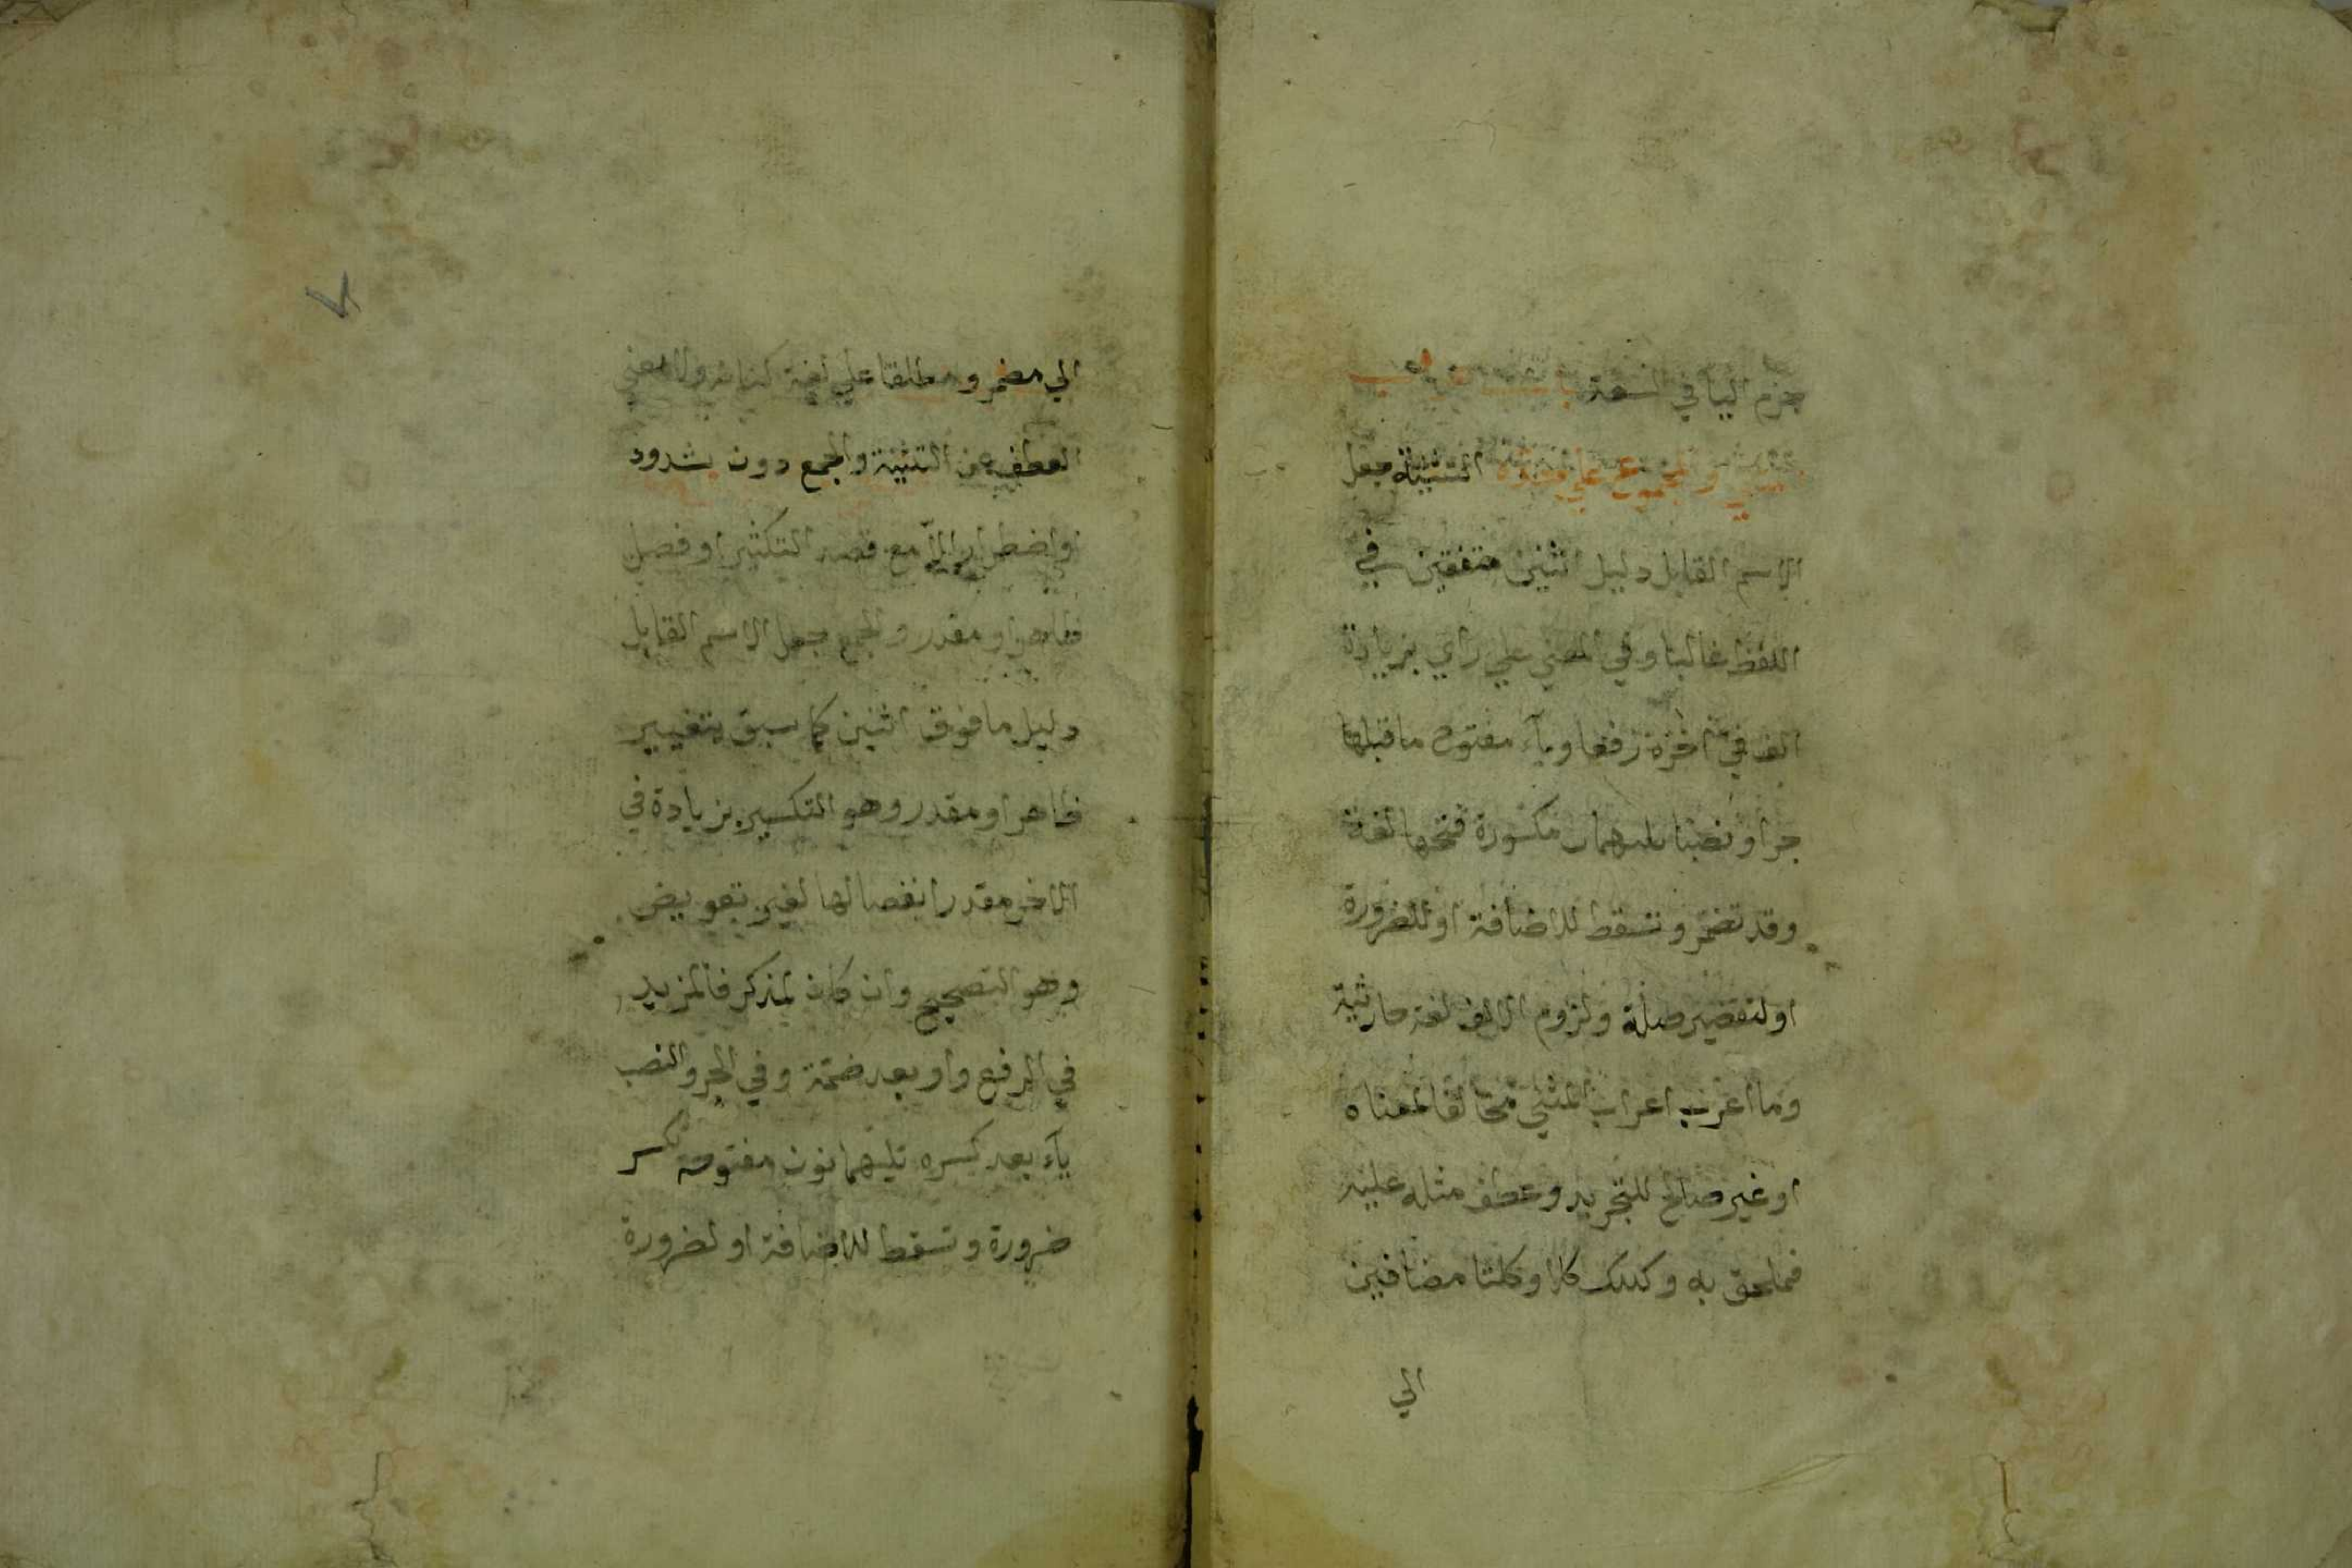 جزم اليا في السعة باب اعراب
المثني والمجموع علي حده التثنية جعل
الاسم القابل دليل اثنين متفقين في
اللفظ غالبا وفي المعني علي راي بزيادة
الف في اخره رفعا ويآء مفتوح ما قبلها
جرا ونصبا يليهما مكسورة فتحها لغة
وقد تضم وتسقط للاضافة او للضرورة
او لتقصير صلة ولزوم الالف لغة حارثية
وما اعرب اعراب المثني مخالفا لمعناه
او غير صالح للتجريد وعطف مثله عليه
فملحق به وكذلك كلا وكلتا مضافين
الي
الي مضمر ومطلقا علي لغة كنانة ولا يغني
العطف عن التثنية والجمع دون شدود
او اضطرار الا مع قصد التكثير او فصل
ظاهر او مقدر والجمع جعل الاسم القابل
دليل ما فوق اثنين كما سبق بتغيير
ظاهر او مقدر وهو التكسير بزيادة في
الاخر مقدر انفصالها لغير تعويض
وهو التصحيح وان كان لمذكر فالمزيد
في الرفع واو بعد ضمة وفي الجر والنصب
يآء بعد كسره تليهما نون مفتوحة تكسر
ضرورة وتسقط للاضافة او لضرورة
٧